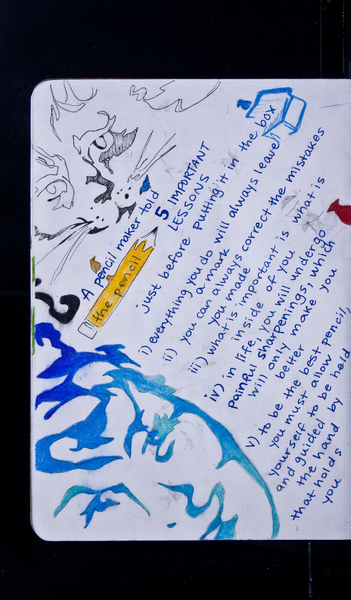 A pencil maker told
the pencil
5 IMPORTANT
LESSONS
just before putting it in the box
i) everything you do will always leave
a mark
ii) you can always correct the mistakes
you made
iii) what is important is what is
inside of you
iv) in life, you will undergo
painful sharpenings, which
will only make you
better
v) to be the best pencil,
you must allow
yourself to be held
and guided by
the hand
that holds
you